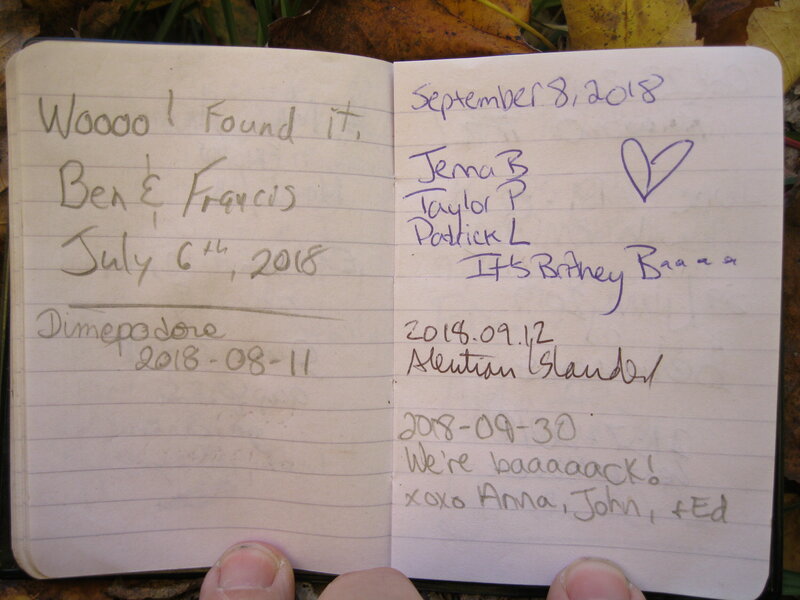 Woooo! Found it.
Ben & Francis
July 6th, 2018
Dimepodore
2018-08-11
September 8, 2018
Jenna B
Taylor P
Patrick L
It's Britney Baaaa
2018.09.12
Aleutian Islander
2018-09-30
We're baaaaack!
xoxo Anna, John, +Ed